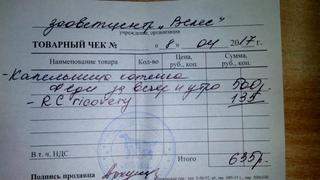 зооветцентр „Велес"
учреждение, организация
ТОВАРНЫЙ ЧЕК № „8" 04 2017 г.
Наименование товара Кол-во Цена, руб., коп. Сумма, руб., коп.
- Капельница котенка
за вечер и утро 500р.
- RC recovery 135
В т. ч. НДС Итого 635р.
Подпись продавца